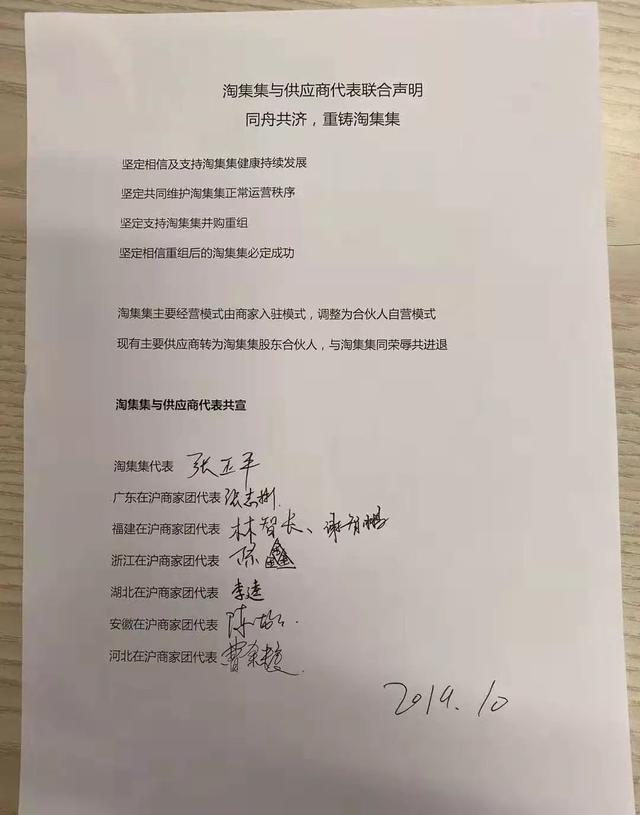 淘集集与供应商代表联合声明
同舟共济，重铸淘集集
坚定相信及支持淘集集健康持续发展
坚定共同维护淘集集正常运营秩序
坚定支持淘集集并购重组
坚定相信重组后的淘集集必定成功
淘集集主要经营模式由商家入驻模式，调整为合伙人自营模式
现有主要供应商转为淘集集股东合伙人，与淘集集同荣辱共进退
淘集集与供应商代表共宣
淘集集代表 张正平
广东在沪商家团代表
福建在沪商家团代表 林智长、
浙江在沪商家团代表
湖北在沪商家团代表
安徽在沪商家团代表
河北在沪商家团代表
2019.10